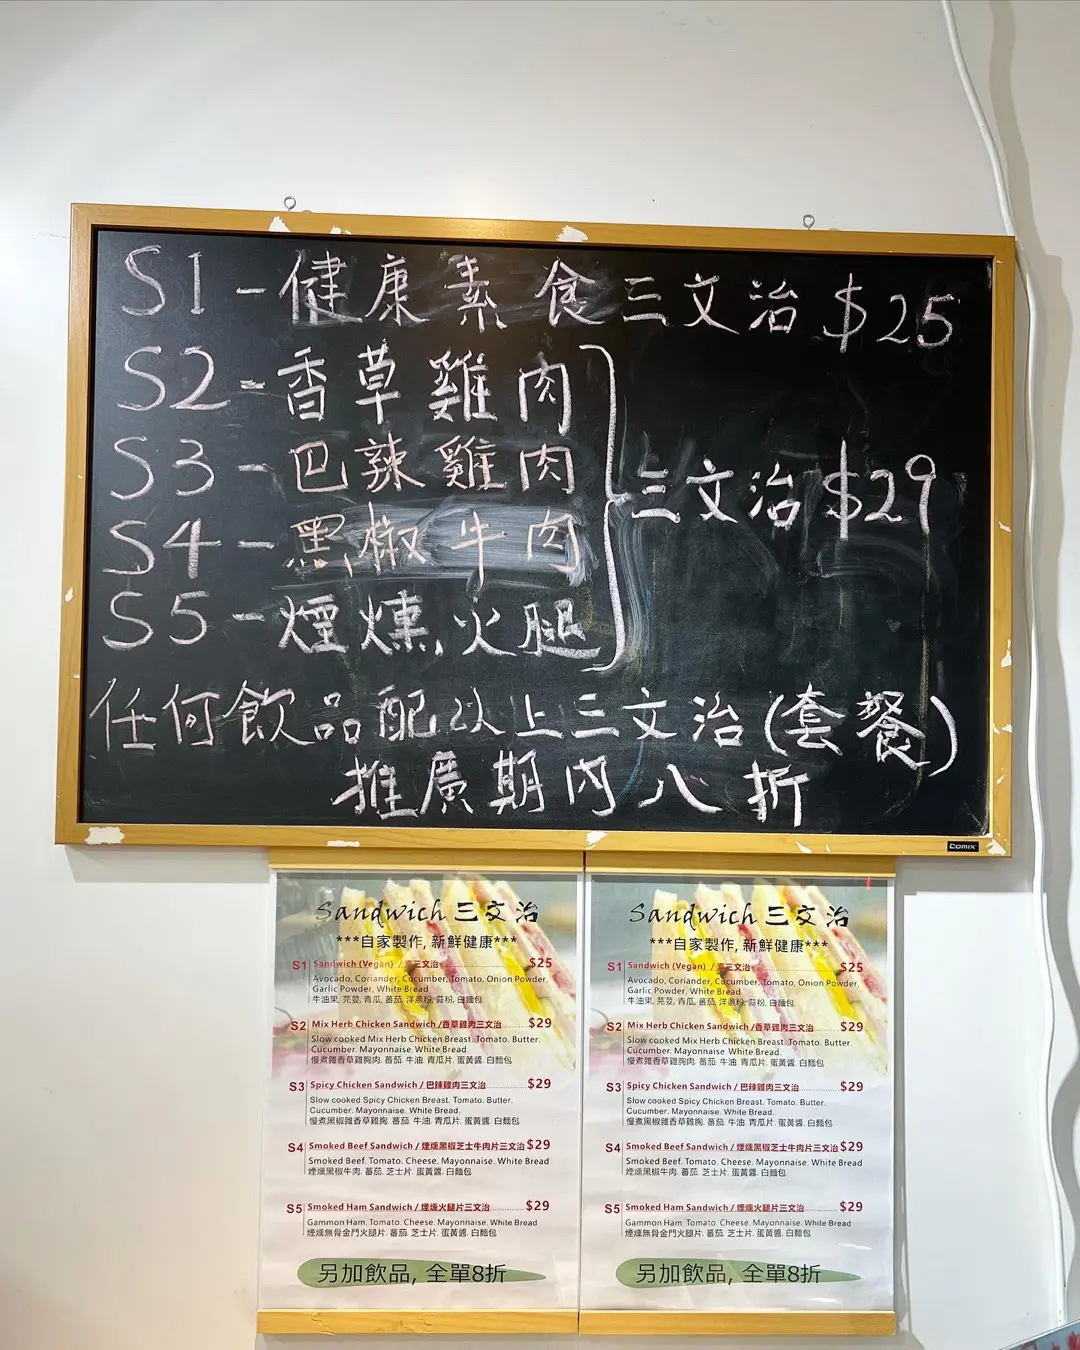 S1-健康素食三文治 $25
S2-香草雞肉
S3-巴辣雞肉
S4-黑椒牛肉
S5-煙燻火腿
三文治 $29
任何飲品配以上三文治(套餐)
推廣期內八折
COMIX
Sandwich 三文治
***自家製作, 新鮮健康***
S1 Sandwich (Vegan) / 素三文治 $25
Avocado, Coriander, Cucumber, Tomato, Onion Powder,
Garlic Powder, White Bread
牛油果, 芫荽, 青瓜, 蕃茄, 洋蔥粉, 蒜粉, 白麵包
S2 Mix Herb Chicken Sandwich /香草雞肉三文治 $29
Slow cooked Mix Herb Chicken Breast. Tomato. Butter.
Cucumber. Mayonnaise. White Bread.
慢煮雜香草雞胸肉. 蕃茄. 牛油. 青瓜片. 蛋黃醬. 白麵包
S3 Spicy Chicken Sandwich / 巴辣雞肉三文治 $29
Slow cooked Spicy Chicken Breast. Tomato. Butter.
Cucumber. Mayonnaise. White Bread.
慢煮黑椒雜香草雞胸. 蕃茄. 牛油. 青瓜片. 蛋黃醬. 白麵包
S4 Smoked Beef Sandwich / 煙燻黑椒芝士牛肉片三文治 $29
Smoked Beef. Tomato. Cheese. Mayonnaise. White Bread
煙燻黑椒牛肉. 蕃茄. 芝士片. 蛋黃醬. 白麵包
S5 Smoked Ham Sandwich / 煙燻火腿片三文治 $29
Gammon Ham. Tomato. Cheese. Mayonnaise. White Bread
煙燻無骨金門火腿片. 蕃茄. 芝士片. 蛋黃醬. 白麵包
另加飲品, 全單8折
Sandwich 三文治
***自家製作, 新鮮健康***
S1 Sandwich (Vegan) / 素三文治 $25
Avocado, Coriander, Cucumber, Tomato, Onion Powder,
Garlic Powder, White Bread
牛油果, 芫荽, 青瓜, 蕃茄, 洋蔥粉, 蒜粉, 白麵包
S2 Mix Herb Chicken Sandwich /香草雞肉三文治 $29
Slow cooked Mix Herb Chicken Breast. Tomato. Butter.
Cucumber. Mayonnaise. White Bread.
慢煮雜香草雞胸肉. 蕃茄. 牛油. 青瓜片. 蛋黃醬. 白麵包
S3 Spicy Chicken Sandwich / 巴辣雞肉三文治 $29
Slow cooked Spicy Chicken Breast. Tomato. Butter.
Cucumber. Mayonnaise. White Bread.
慢煮黑椒雜香草雞胸. 蕃茄. 牛油. 青瓜片. 蛋黃醬. 白麵包
S4 Smoked Beef Sandwich / 煙燻黑椒芝士牛肉片三文治 $29
Smoked Beef. Tomato. Cheese. Mayonnaise. White Bread
煙燻黑椒牛肉. 蕃茄. 芝士片. 蛋黃醬. 白麵包
S5 Smoked Ham Sandwich / 煙燻火腿片三文治 $29
Gammon Ham. Tomato. Cheese. Mayonnaise. White Bread
煙燻無骨金門火腿片. 蕃茄. 芝士片. 蛋黃醬. 白麵包
另加飲品, 全單8折